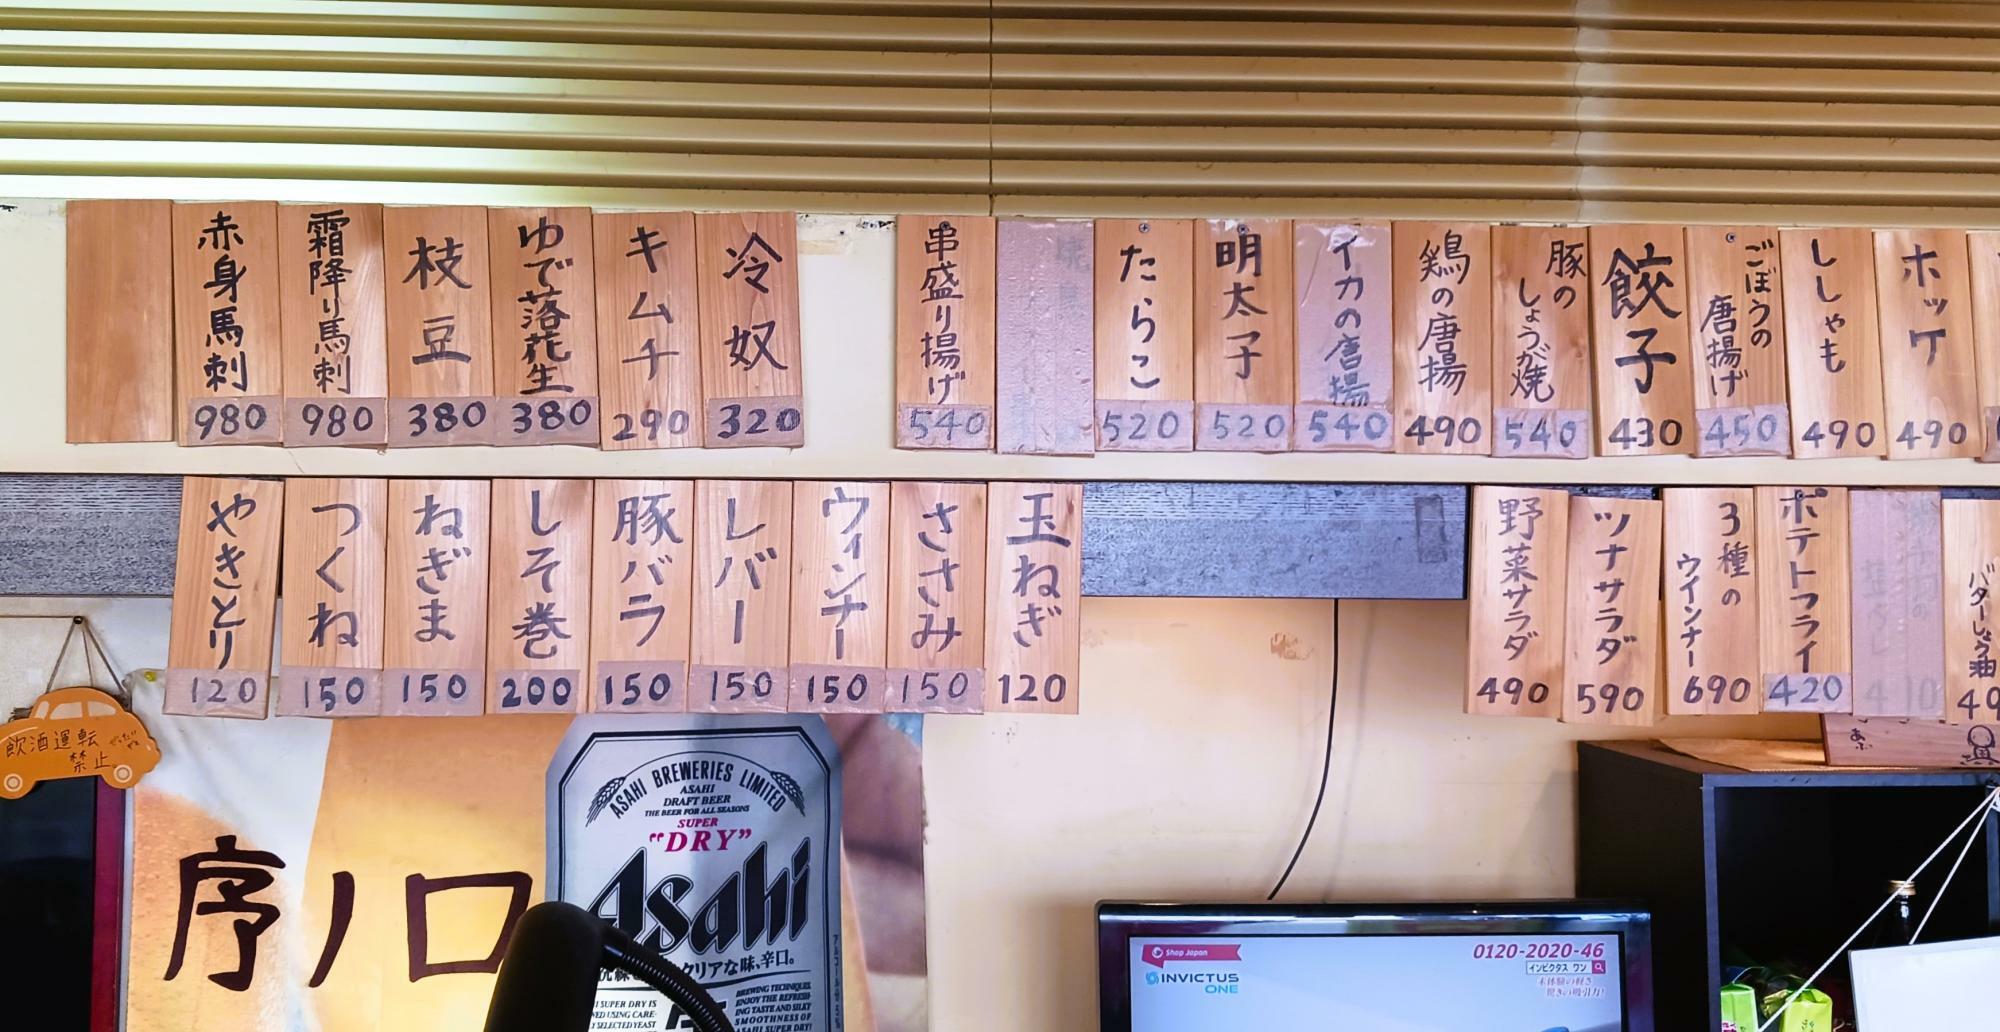 赤身馬刺
980
霜降り馬刺
980
枝豆
380
ゆで落花生
380
キムチ
290
冷奴
320
串盛り揚げ
540
たらこ
520
明太子
520
イカの唐揚
540
鶏の唐揚
490
豚の
しょうが焼
540
餃子
430
ごぼうの
唐揚げ
450
ししゃも
490
ホッケ
490
やきとり
120
つくね
150
ねぎま
150
しそ巻
200
豚バラ
150
レバー
150
ウィンナー
150
ささみ
150
玉ねぎ
120
野菜サラダ
490
ツナサラダ
590
3種の
ウインナー
690
ポテトフライ
420
410
バターしょう油
49
飲酒運転
禁止
序ノ口
ASAHI BREWERIES LIMITED
ASAHI
DRAFT BEER
THE BEER FOR ALL SEASONS
SUPER
"DRY"
Asahi
クリアな味、辛口。
SUPER DRY IS
SELECTED YEAST
BREWING TECHNIQUES
ENJOY THE REFRESH-
ING TASTE AND SILKY
SMOOTHNESS OF
ASAHI SUPER DRY!
Shop Japan
INVICTUS
ONE
0120-2020-46
インビクタス ワン
未体験の軽さ
驚きの吸引力!